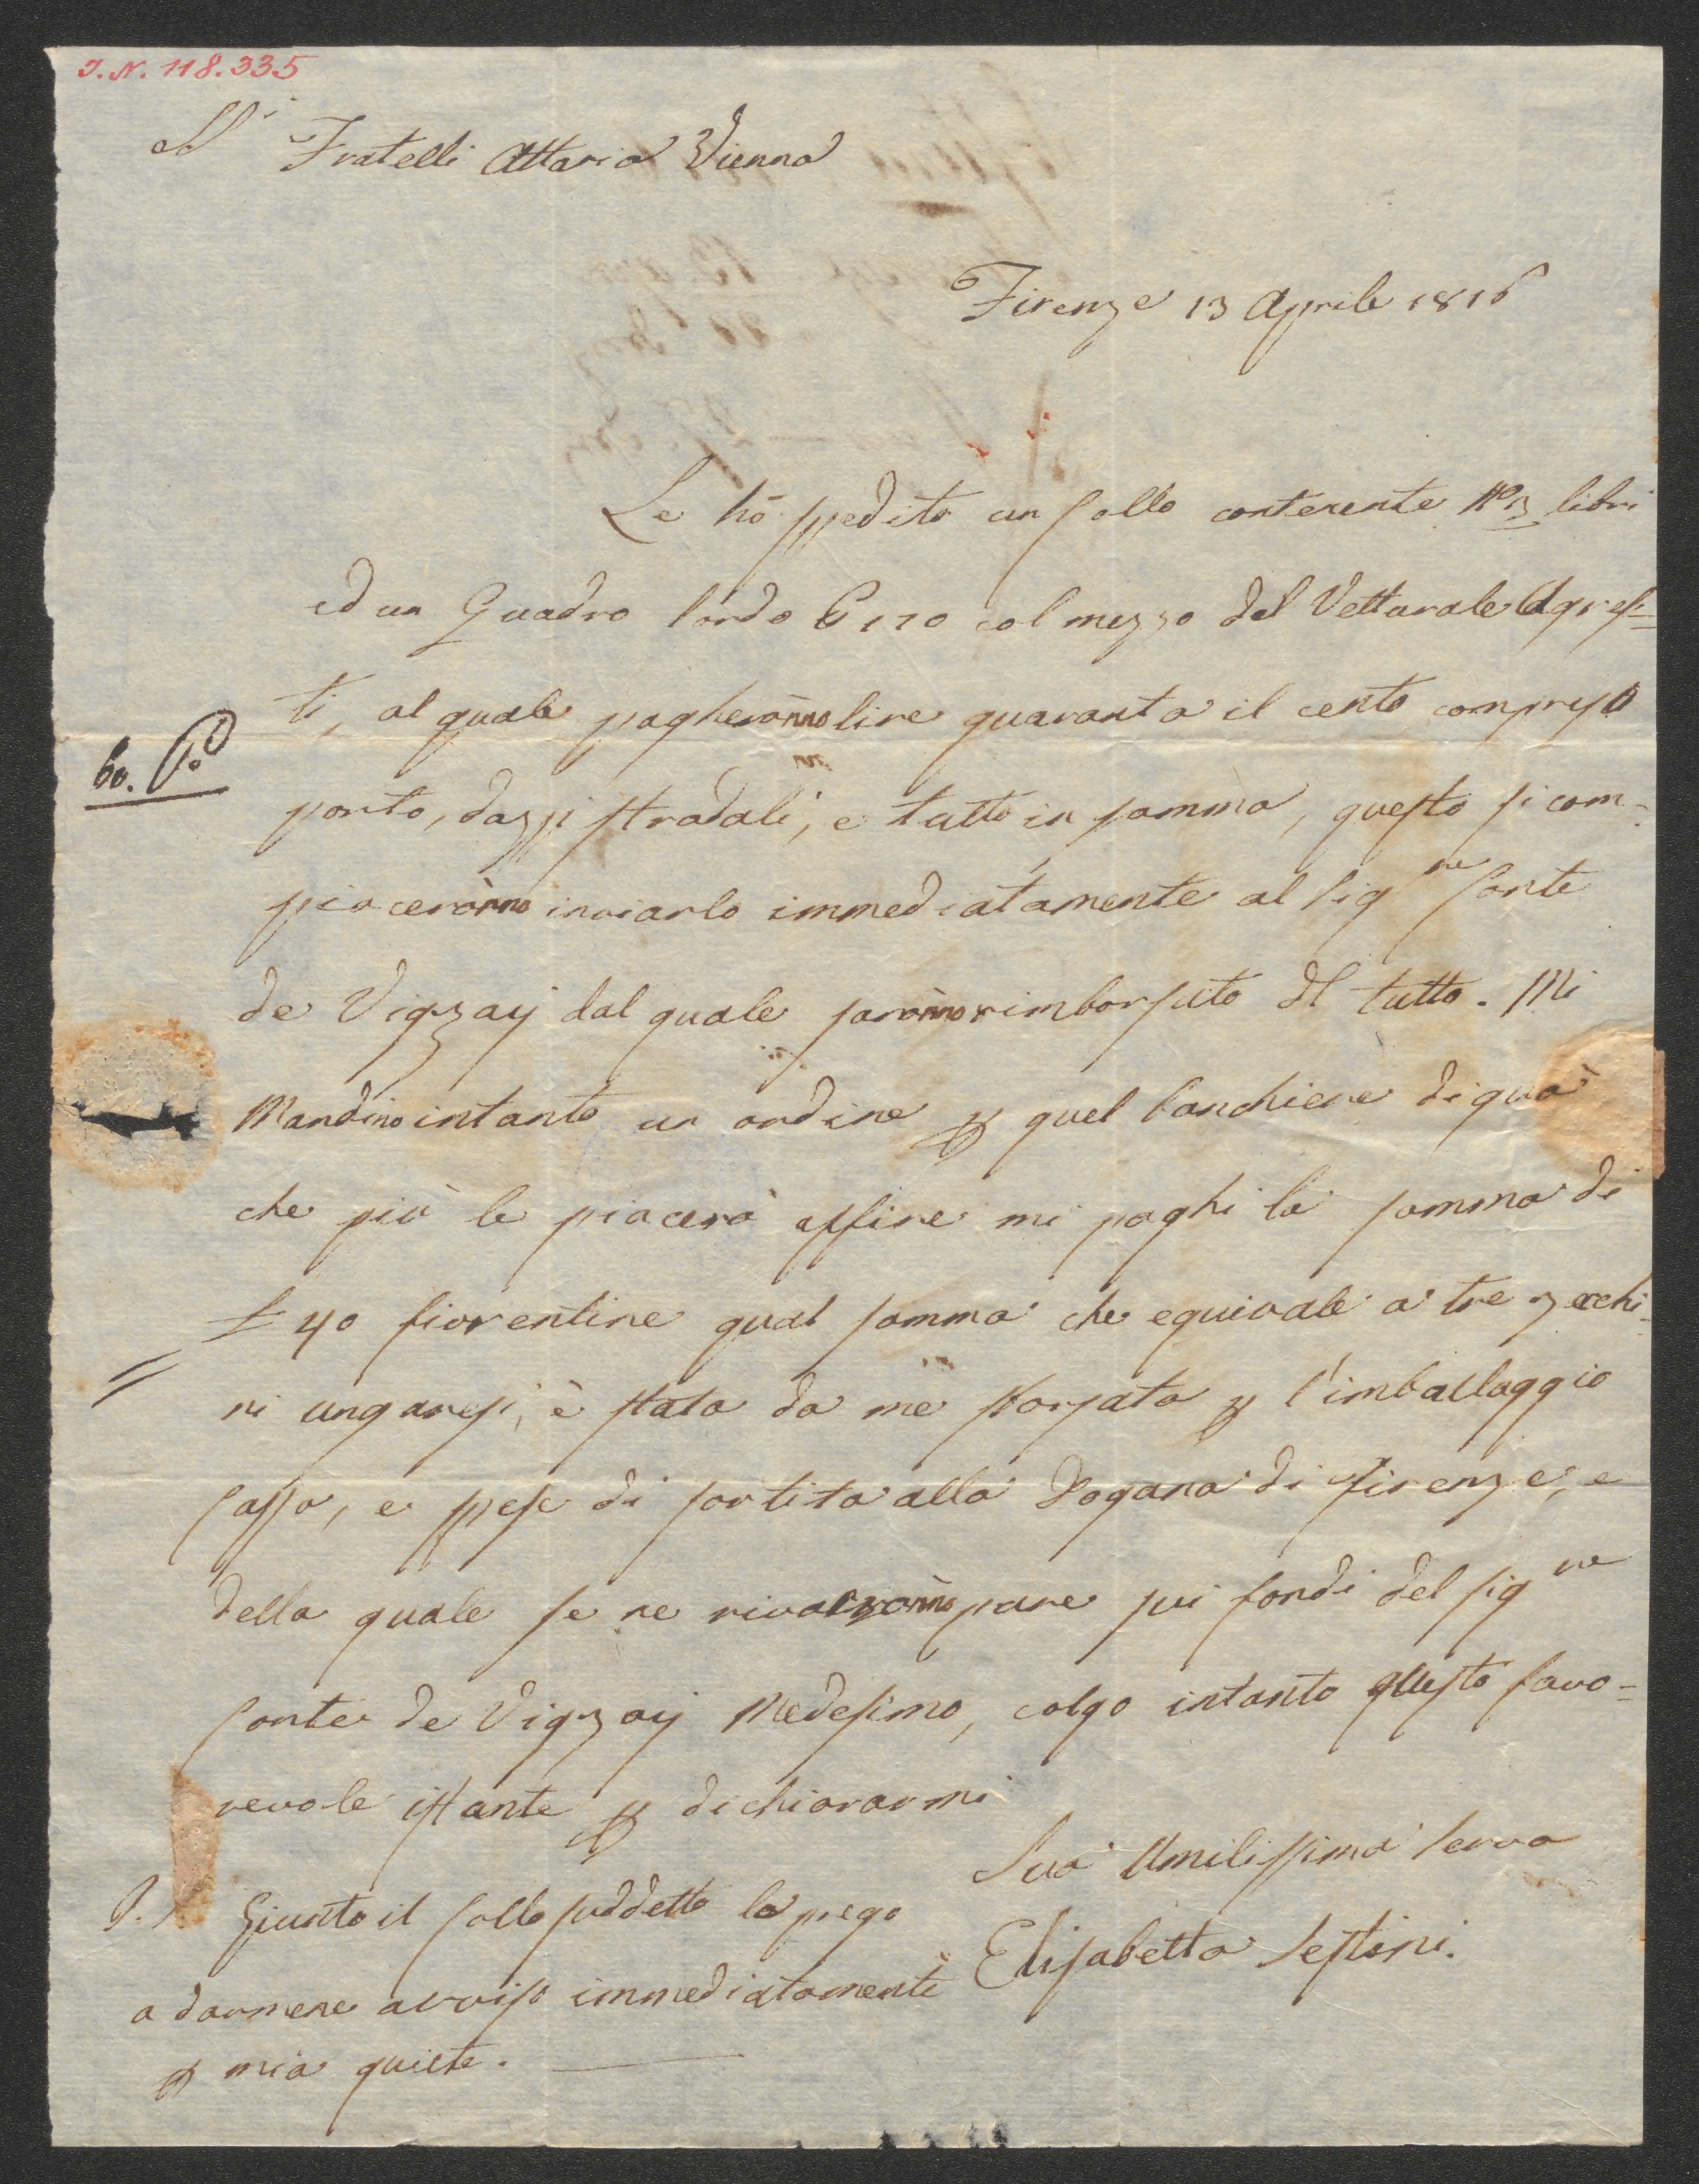 I. N. 118.335
SS.i Fratelli Attaria Vienna
Firenze 13 Aprile 1816
Le hò spedito un Collo contenente N.o 3 libri
ed un Quadro lordo 170 col mezzo del Vetturale Agres=
ti, al quale pagherànno lire quaranta il cento compreso
60. P.
porto, dazzi stradali, e tutto in somma, questo si com=
piacerànno inviarlo immediatamente al Sig.re Conte
de Vigzaÿ dal quale sarànno rimborsato del tutto. Mi
Mandino intanto un ordine p quel banchiere di quà
che più le piacerà affine mi paghi la somma di
£ 40 fiorentine qual somma che equivale a tre zecchi=
ni ungaresi, è stata da me sborsata p l'imballaggio
Cassa, e spese di sortita alla Dogana di Firenze, e
della quale se ne rivarrànno pure sui fondi del Sig.re
Conte de Vigzaÿ Medesimo, colgo intanto questo favo=
revole istante p dichiararmi
Sua Umilissima Serva
Elisabetta Sestini.
P. S. Giunto il Collo suddetto la prego
a darmene avviso immediatamente
p mia quiete.